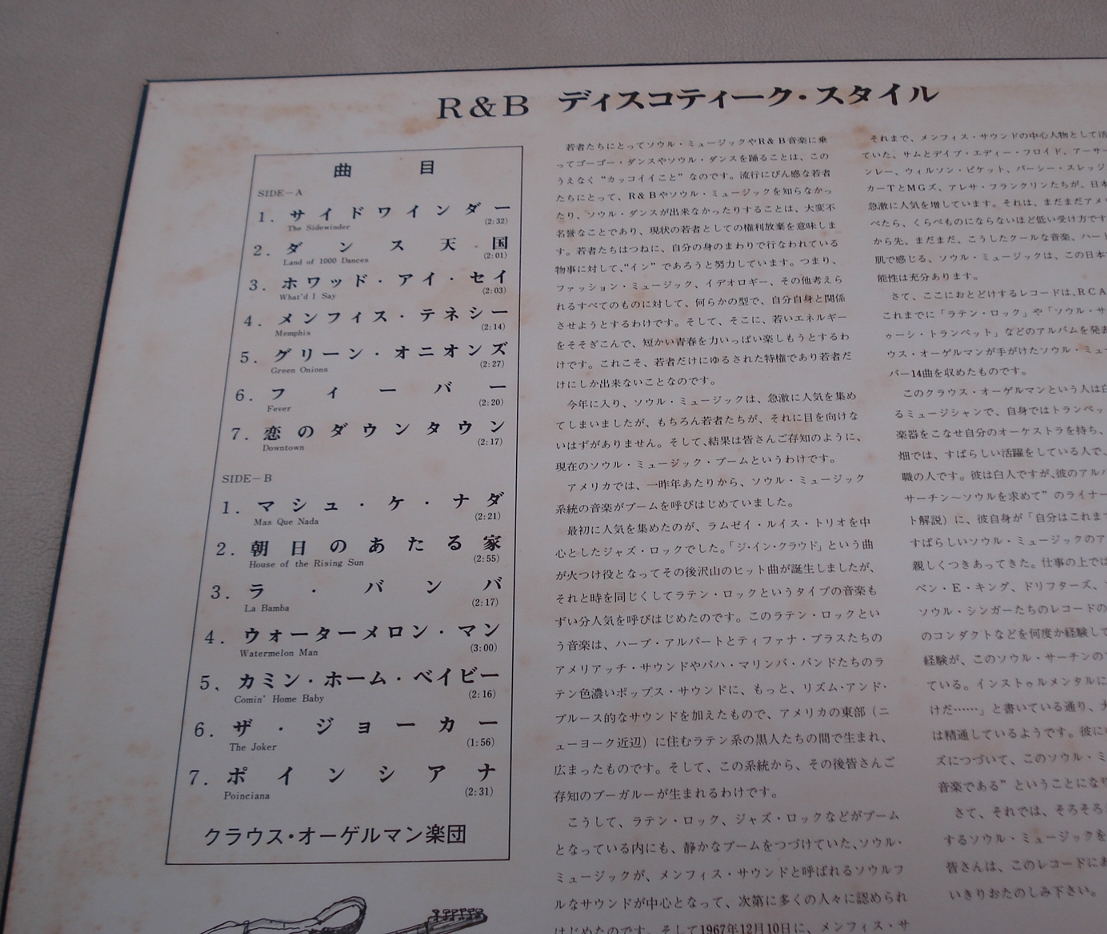 R&B ディスコティーク・スタイル
曲目
SIDE-A
1. サイドワインダー
The Sidewinder (2:32)
2. ダンス天国
Land of 1000 Dances (2:01)
3. ホワッド・アイ・セイ
What'd I Say (2:03)
4. メンフィス・テネシー
Memphis (2:14)
5. グリーン・オニオンズ
Green Onions (2:27)
6. フィーバー
Fever (2:20)
7. 恋のダウンタウン
Downtown (2:17)
SIDE-B
1. マシュ・ケ・ナダ
Mas Que Nada (2:21)
2. 朝日のあたる家
House of the Rising Sun (2:55)
3. ラ・バンバ
La Bamba (2:17)
4. ウォーターメロン・マン
Watermelon Man (3:00)
5. カミン・ホーム・ベイビー
Comin' Home Baby (2:16)
6. ザ・ジョーカー
The Joker (1:56)
7. ポインシアナ
Poinciana (2:31)
クラウス・オーゲルマン楽団
若者たちにとってソウル・ミュージックやR&B音楽に乗
ってゴーゴー・ダンスやソウル・ダンスを踊ることは、この
うえなく“カッコイイこと”なのです。流行にびん感な若者
たちにとって、R&Bやソウル・ミュージックを知らなかっ
たり、ソウル・ダンスが出来なかったりすることは、大変不
名誉なことであり、現状の若者としての権利放棄を意味しま
す。若者たちはつねに、自分の身のまわりで行なわれている
物事に対して、“イン”であろうと努力しています。つまり、
ファッション・ミュージック、イデオロギー、その他考えら
れるすべてのものに対して、何らかの型で、自分自身と関係
させようとするわけです。そして、そこに、若いエネルギー
をそそぎこんで、短かい青春を力いっぱい楽しもうとするわ
けです。これこそ、若者だけにゆるされた特権であり若者だ
けにしか出来ないことなのです。
今年に入り、ソウル・ミュージックは、急激に人気を集め
てしまいましたが、もちろん若者たちが、それに目を向けな
いはずがありません。そして、結果は皆さんご存知のように、
現在のソウル・ミュージック・ブームというわけです。
アメリカでは、一昨年あたりから、ソウル・ミュージック
系統の音楽がブームを呼びはじめていました。
最初に人気を集めたのが、ラムゼイ・ルイス・トリオを中
心としたジャズ・ロックでした。「ジ・イン・クラウド」という曲
が火つけ役となってその後沢山のヒット曲が誕生しましたが、
それと時を同じくしてラテン・ロックというタイプの音楽も
ずい分人気を呼びはじめたのです。このラテン・ロックとい
う音楽は、ハーブ・アルパートとティファナ・ブラスたちの
アメリアッチ・サウンドやバハ・マリンバ・バンドたちのラ
テン色濃いポップス・サウンドに、もっと、リズム・アンド・
ブルース的なサウンドを加えたもので、アメリカの東部（ニ
ューヨーク近辺）に住むラテン系の黒人たちの間で生まれ、
広まったものです。そして、この系統から、その後皆さんご
存知のブーガルーが生まれるわけです。
こうして、ラテン・ロック、ジャズ・ロックなどがブーム
となっている内にも、静かなブームをつづけていた、ソウル・
ミュージックが、メンフィス・サウンドと呼ばれるソウルフ
ルなサウンドが中心となって、次第に多くの人々に認められ
はじめたのです。そして1967年12月10日に、メンフィス・サ
それまで、メンフィス・サウンドの中心人物として活
ていた、サムとデイブ・エディー・フロイド、アーサー
ンレー、ウィルソン・ピケット、パーシー・スレッジ
カーTとMGズ、アレサ・フランクリンたちが、日本
急激に人気を増しています。それは、まだまだアメ
べたら、くらべものにならないほど低い受け方です
から先、まだまだ、こうしたクールな音楽、ハート
肌で感じる、ソウル・ミュージックは、この日本
能性は充分あります。
さて、ここにおとどけするレコードは、RCA
これまでに「ラテン・ロック」や「ソウル・サ
ゥーシ・トランペット」などのアルバムを発表
ウス・オーゲルマンが手がけたソウル・ミュー
バー14曲を収めたものです。
このクラウス・オーゲルマンという人は白
るミュージシャンで、自身ではトランペッ
楽器をこなせ自分のオーケストラを持ち、
畑では、すばらしい活躍をしている人で、
職の人です。彼は白人ですが、彼のアルバ
サーチン〜ソウルを求めて”のライナー
ト解説）に、彼自身が「自分はこれま
すばらしいソウル・ミュージックのア
親しくつきあってきた。仕事の上では
ベン・E・キング、ドリフターズ、
ソウル・シンガーたちのレコードの
のコンダクトなどを何度か経験して
経験が、このソウル・サーチンの
ている。インストゥルメンタルに
けだ……」と書いている通り、
は精通しているようです。彼に
ズにつづいて、このソウル・ミ
音楽である”ということにな
さて、それでは、そろそろ
するソウル・ミュージックを
皆さんは、このレコードに
いきりおたのしみ下さい。